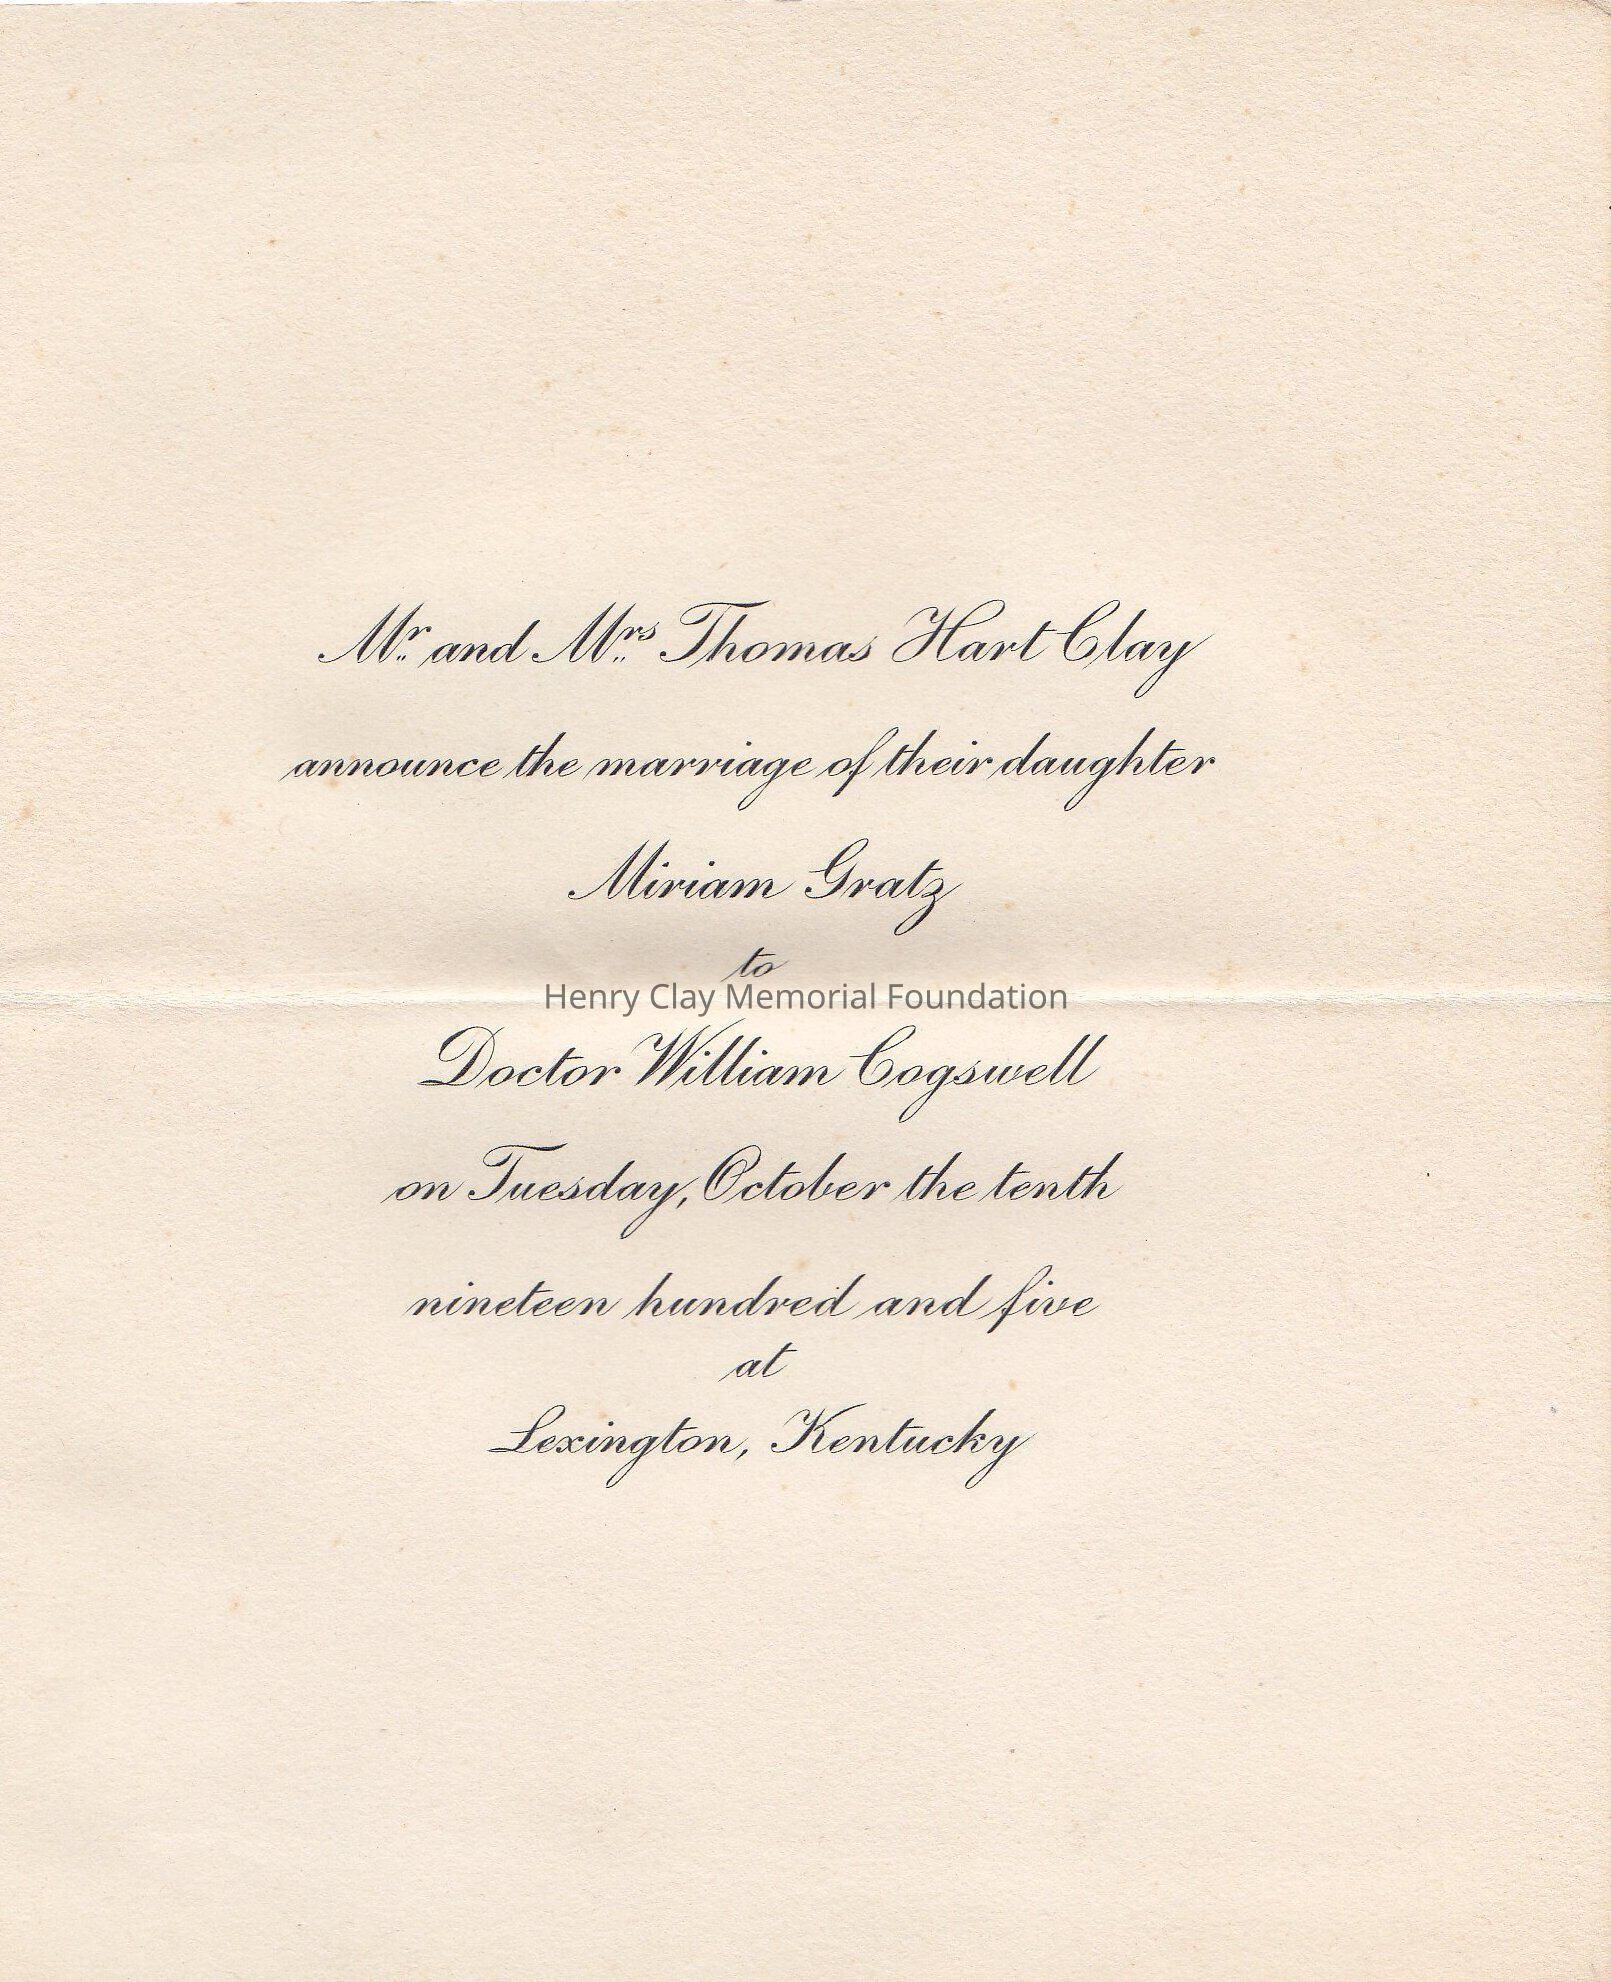 Mr. and Mrs. Thomas Hart Clay
announce the marriage of their daughter
Miriam Gratz
to
Henry Clay Memorial Foundation
Doctor William Cogswell
on Tuesday, October the tenth
nineteen hundred and five
at
Lexington, Kentucky